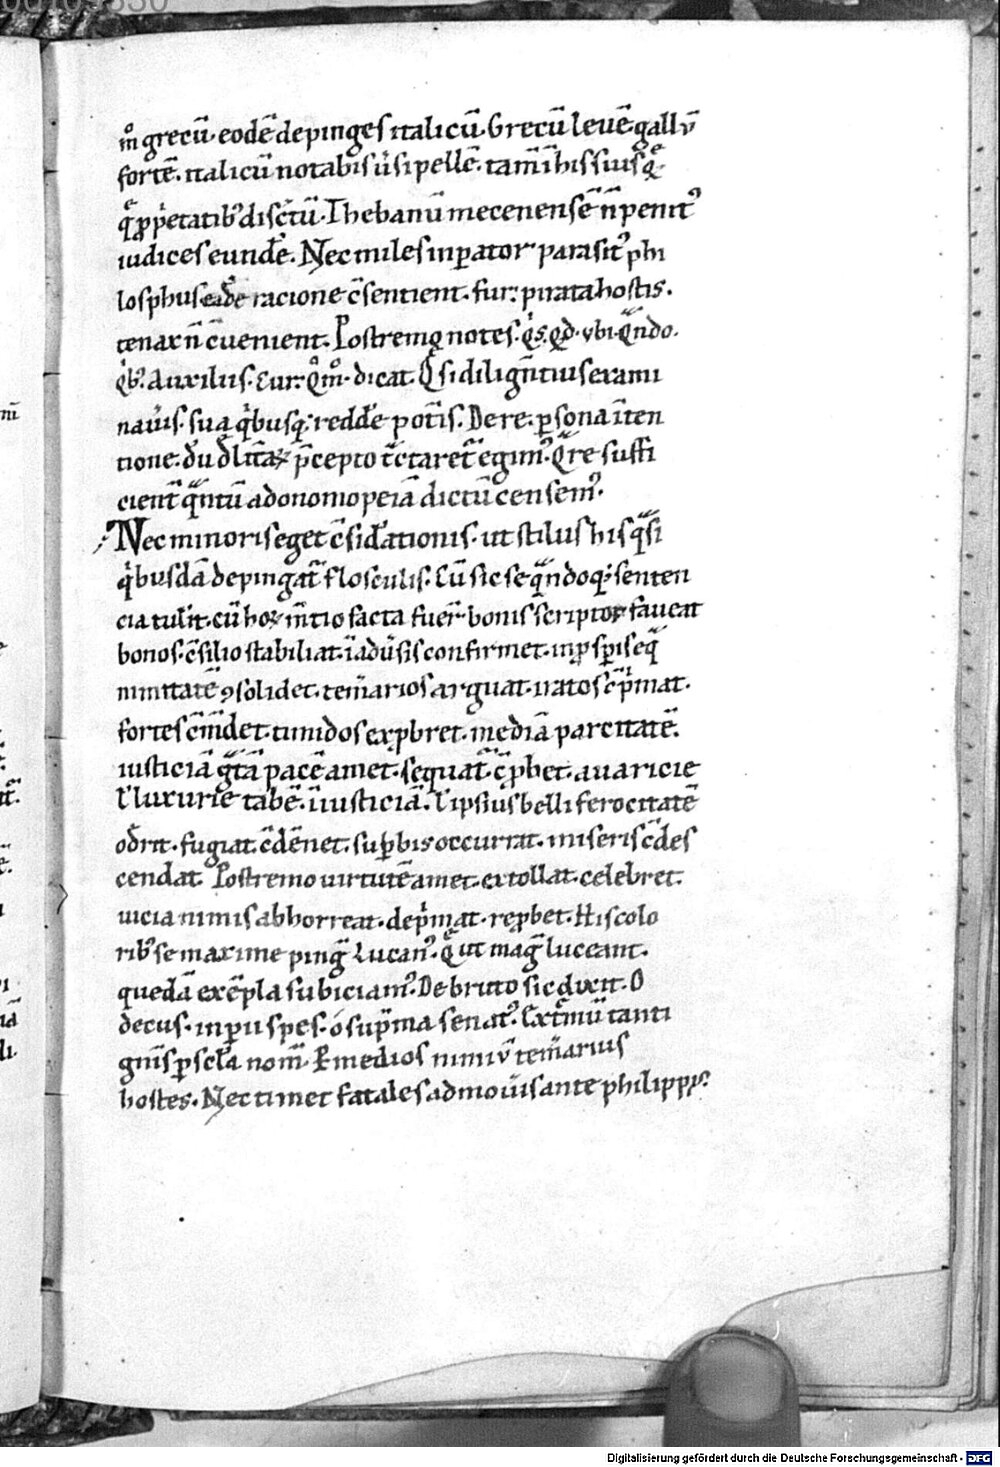 mͦ grecū·eodē depinges italicū·Grecū leuē·gallū
fortē·italicū notabis u̅sipellē·tam̄ ī his suis
ꝓp̄etatibꝰ disc̄tū·Thebanū mecenensē n̄ penitꝰ
iudices eundē·Nec miles inꝑator parasitꝰ phi
losphus eadē racione c̄sentient·fur·pirata hostis·
tenax n̄ c̄uenient·Postremo notes·q̄s·q̄d·vbi·q̄ndo·
qͥbꝰ·Auxiliis·Cur·Qͦmͦ·dicat·Qͥ si dilign̄tius exami
nau̅is·sua qͥbusqꝫ reddē pot̄is·De re·ꝑsona īten
tione·
cient̄ qͣntū ad onomopeiā dictū censemꝰ·
Nec minoris eget c̄sid̄ationis·ut stilus his qͣsi
qͥbusdā depingat̄ flosculis·Cū sic se qͣndoqꝫ senten
cia tulit·cū hoꝝ m̄tio facta fuer̄·bonis scriptor faueat
bonos·c̄silio stabiliat·ī adu̅sis confirmet·in ꝓsꝑis eqͣ
nimitatē ꝯsolidet·tem̄arios arguat·iratos c̄p̄mat·
fortes c̄m̄det·timidos exꝓbret·mediā parcitatē·
iusticiā gͣtā pacē amet·sequat̄·c̄ꝓbet·auaricie
ł luxurie tabē·īiusticiā·ł ipsius belli ferocitatē
od̄it·fugiat·c̄dēnet·suꝑbis occurrat·miseris c̄des
cendat·Postremo uirtutē amet·extollat·celebret·
uicia nimis abhorreat·dep̄mat·reꝓbet·His colo
ribꝰ se maxime ping̅ Lucanꝰ·Q̄ ut mag̅ luceant·
quedā exēpla subiciamꝰ·De bruto sic dixit·O
decus·inꝑii spes·o sup̄ma senatꝰ·Ext̄mū tanti
gn̄is ꝑ scl̄a nom̄·Ne medios nimiū tem̄arius
hostes·Nec timet fatales admou̅is ante philippꝰ·
Digitalisierung gefördert durch die Deutsche Forschungsgemeinschaft - DFG